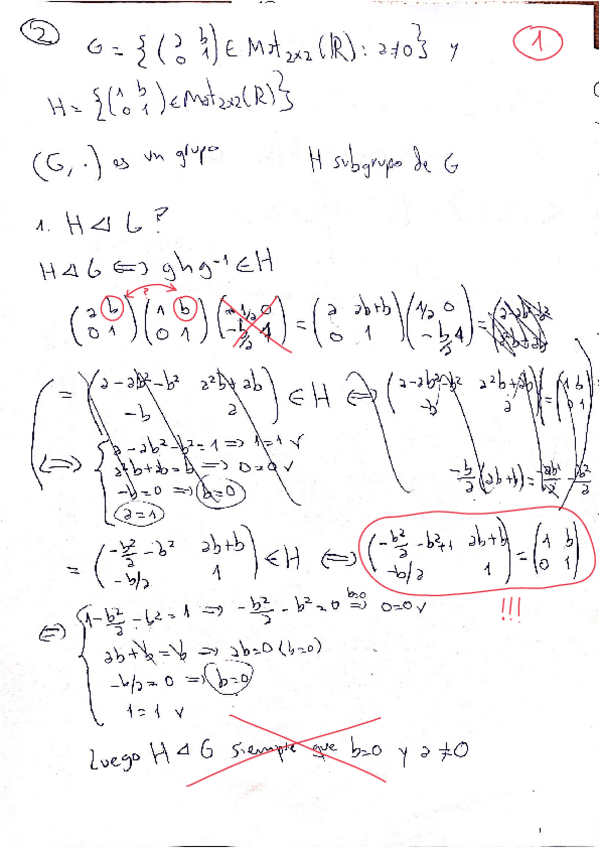 2 G = {(a b / 0 1) ∈ Mat₂ₓ₂(ℝ) : a≠0} y 1
H = {(1 b / 0 1) ∈ Mat₂ₓ₂(ℝ)}
(G, ·) es un grupo H subgrupo de G
1. H ⊲ G ?
H ⊲ G ⟺ ghg⁻¹ ∈ H
?
(a b / 0 1)(1 b / 0 1)(1/a 0 / -b/a 1) = (a ab+b / 0 1)(1/a 0 / -b/a 1) =
= (a-ab²-b² a²b+ab / -b a) ∈ H ⟺ (a-ab²-b² a²b+ab / -b a) = (1 b / 0 1)
⟺ { a-ab²-b²=1 ⟹ 1=1 ✓
a²b+ab=b ⟹ 0=0 ✓
-b=0 ⟹ b=0
a=1
-b/a (ab+b) = -ab²/a - b²/a
= (-b²/a - b² ab+b / -b/a 1) ∈ H ⟺ (-b²/a - b²+1 ab+b / -b/a 1) = (1 b / 0 1)
!!!
⟺ { 1-b²/a-b²=1 ⟹ -b²/a-b²=0 ⟹ b=0 0=0 ✓
ab+b=b ⟹ ab=0 (b=0)
-b/a=0 ⟹ b=0
1=1 ✓
Luego H ⊲ G siempre que b=0 y a≠0